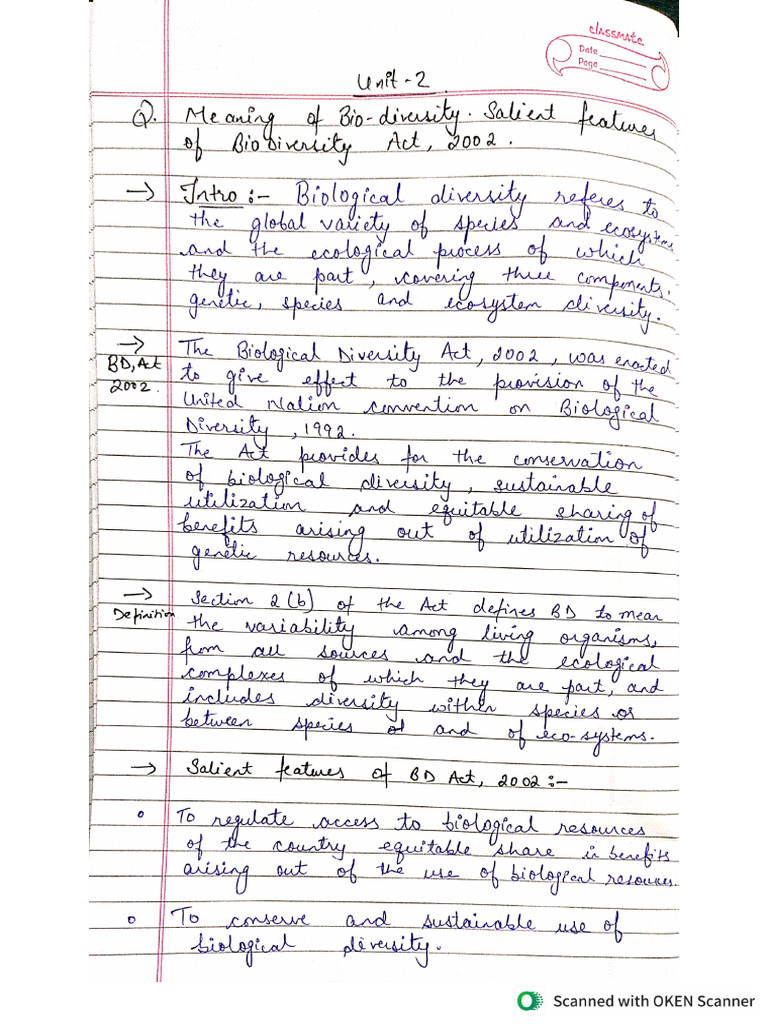 classmate
Date
Page
Unit-2
Q. Meaning of Bio-diversity. Salient features
of BioDiversity Act, 2002.
→ Intro :- Biological diversity referes to
the global variety of species and ecosystems
and the ecological process of which
they are part, covering three components,
genetic, species and ecosystem diversity.
→ The Biological Diversity Act, 2002, was enacted
BD, Act to give effect to the provision of the
2002. United Nation convention on Biological
Diversity, 1992.
The Act provides for the conservation
of biological diversity, sustainable
utilization and equitable sharing of
benefits arising out of utilization of
genetic resources.
→ Section 2(b) of the Act defines BD to mean
Definition the variability among living organisms,
from all sources and the ecological
complexes of which they are part, and
includes diversity within species or
between species and of eco-systems.
→ Salient features of BD Act, 2002 :-
o To regulate access to biological resources
of the country equitable share in benefits
arising out of the use of biological resources.
o To conserve and sustainable use of
biological diversity.
Scanned with OKEN Scanner